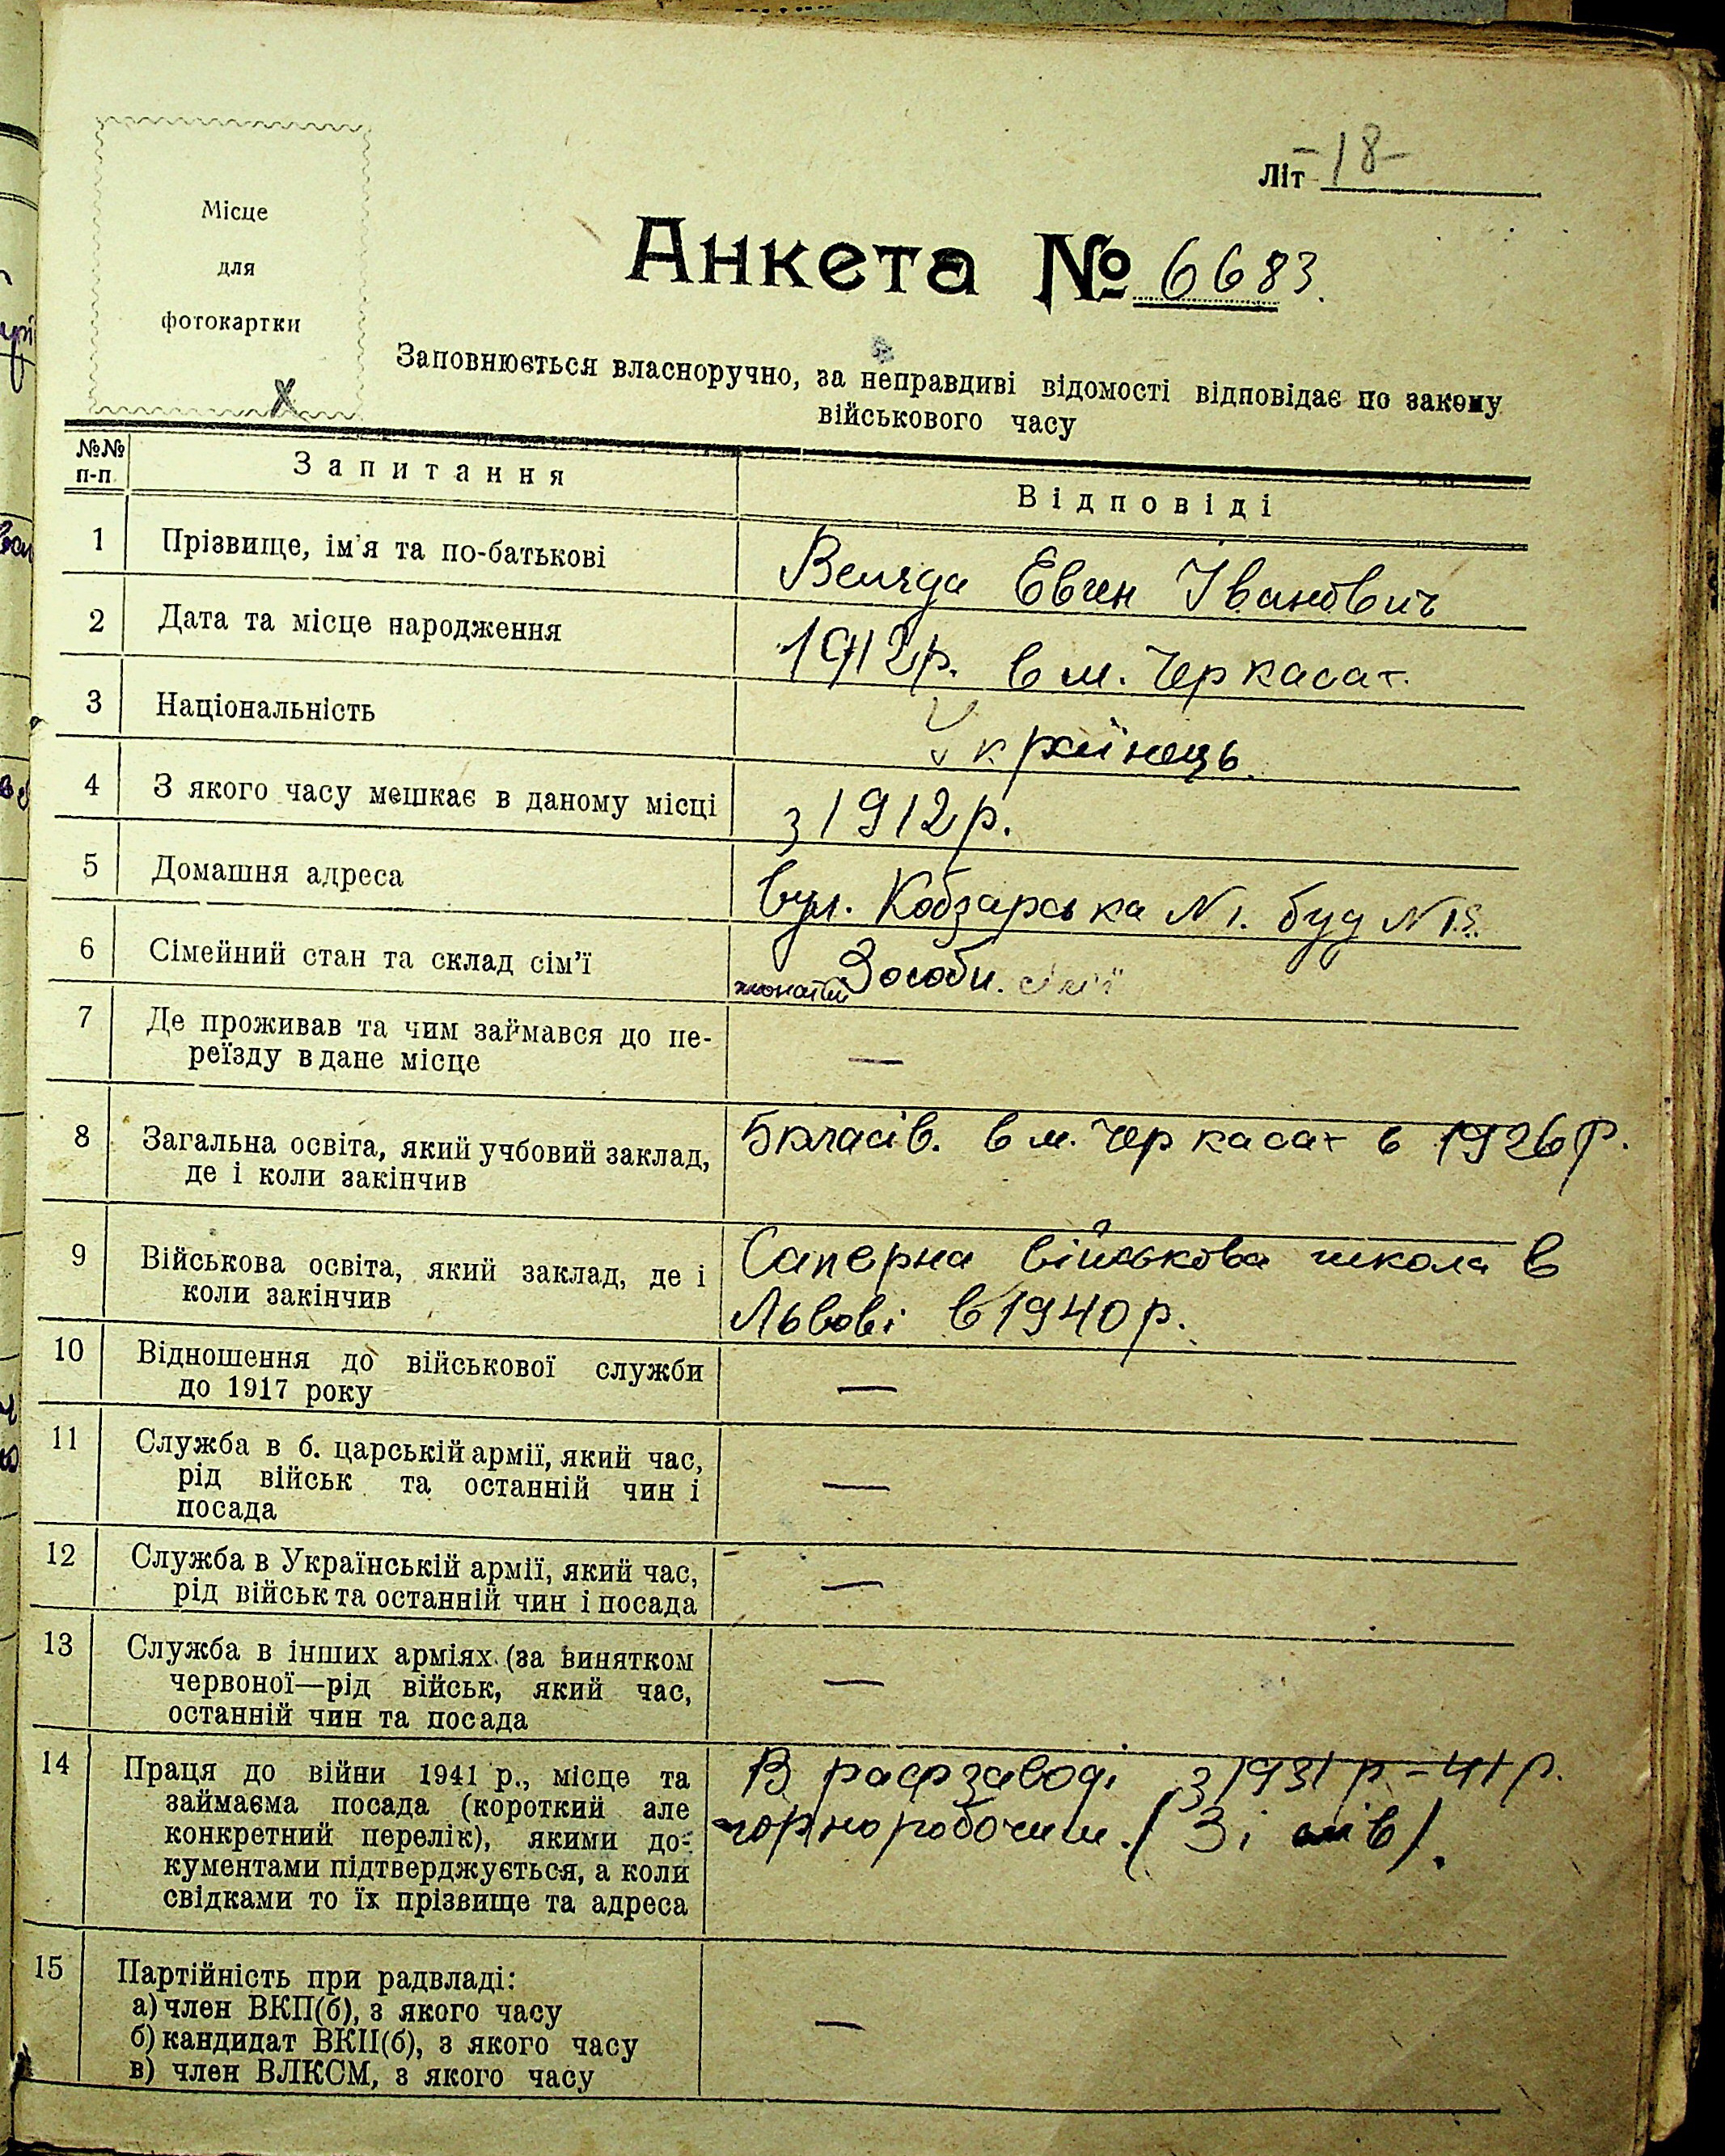 Літ -18-
Місце
для
фотокартки
х
Анкета № 6683.
Заповнюється власноручно, за неправдиві відомості відповідає по закону
військового часу
№№
п-п
Запитання
Відповіді
1 Прізвище, ім'я та по-батькові
Евген Іванович
2 Дата та місце народження
1912р. в м. Черкасах.
3 Національність
Українець.
4 З якого часу мешкає в даному місці
з 1912 р.
5 Домашня адреса
вул. Кобзарська N 1. буд N
6 Сімейний стан та склад сім'ї
жонатий 3 особи. сім'ї
7 Де проживав та чим займався до пе-
реїзду в дане місце
—
8 Загальна освіта, який учбовий заклад,
де і коли закінчив
5 класів. в м. Черкасах в 1926 р.
9 Військова освіта, який заклад, де і
коли закінчив
Саперна військова школа в
Львові в 1940 р.
10 Відношення до військової служби
до 1917 року
—
11 Служба в б. царській армії, який час,
рід військ та останній чин і
посада
—
12 Служба в Українській армії, який час,
рід військ та останній чин і посада
—
13 Служба в інших арміях (за винятком
червоної—рід військ, який час,
останній чин та посада
—
14 Праця до війни 1941 р., місце та
займаєма посада (короткий але
конкретний перелік), якими до-
кументами підтверджується, а коли
свідками то їх прізвище та адреса
В рафзаводі з 1931 р - 41 р.
чорноробочим. (Зі слів).
15 Партійність при радвладі:
а) член ВКП(б), з якого часу
б) кандидат ВКП(б), з якого часу
в) член ВЛКСМ, з якого часу
—